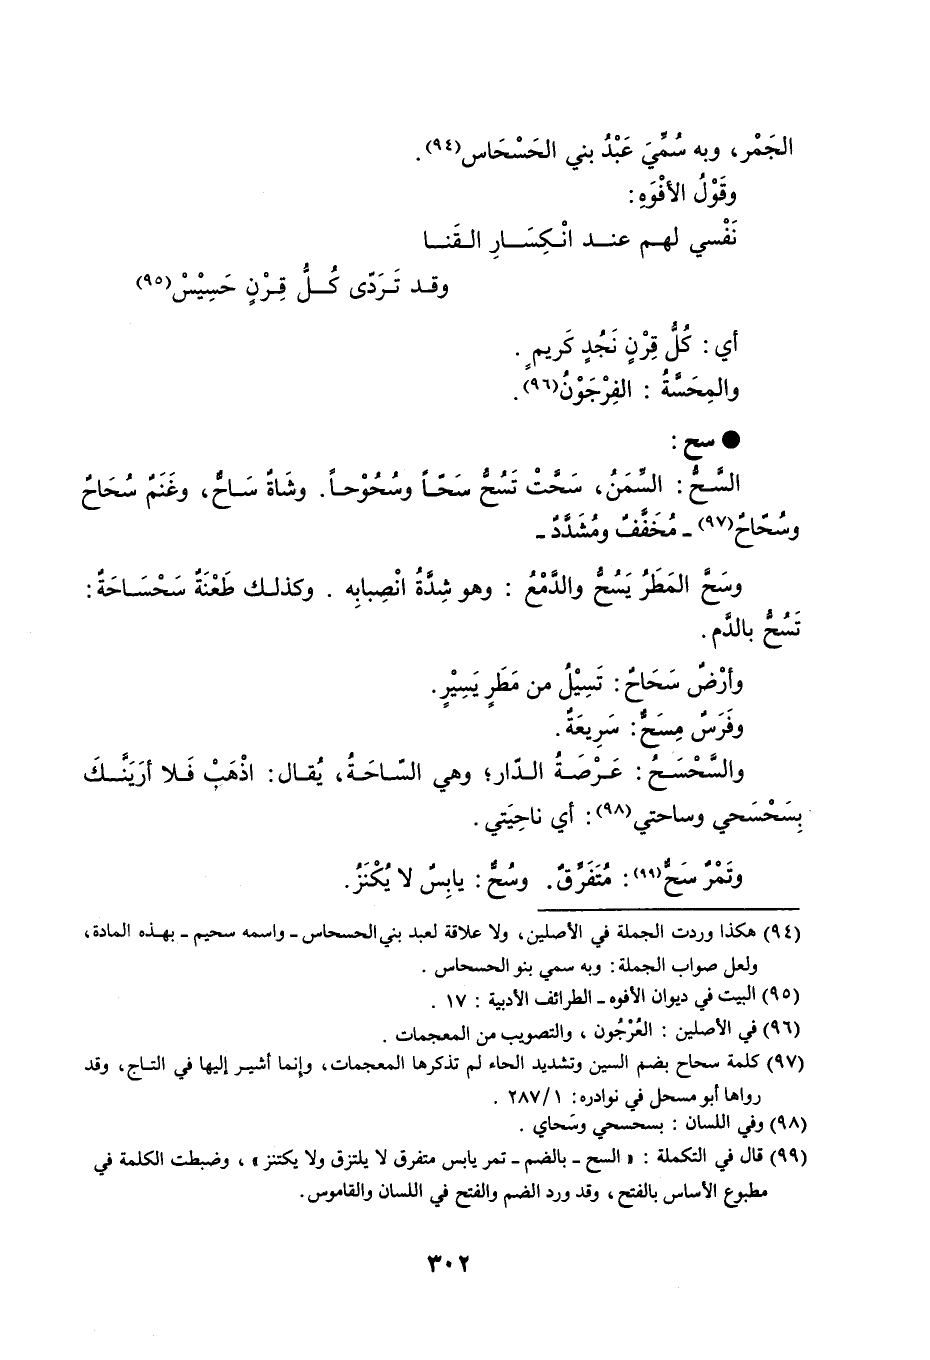 الجَمْر، وبه سُمِّيَ عَبْدُ بني الحَسْحَاس(٩٤).
وقَوْلُ الأفْوَهِ:
نَفْسي لهـم عنـد انْكِسَـارِ القَنـا
وقـد تَـرَدّى كُـلُّ قِـرْنٍ حَسِيْسْ(٩٥)
أي: كُلُّ قِرْنٍ نَجُدٍ كَريمٍ.
والمِحَسَّةُ : الفِرْجَوْنُ(٩٦).
● سح :
السَّحُّ: السِّمَنُ، سَحَّتْ تَسُحُّ سَحّـاً وسُحُوْحـاً. وشَاةٌ سَـاحٌّ، وغَنَمٌ سُحَاحٌ
وسُحّاحٌ(٩٧) ـ مُخَفَّفٌ ومُشَدَّدٌ ـ
وسَحَّ المَطَرُ يَسُحُّ والدَّمْعُ : وهو شِدَّةُ انْصِبابِه . وكذلـك طَعْنَةٌ سَحْسَـاحَةٌ:
تَسُحُّ بالدَّم.
وأرْضٌ سَحَاحٌ: تَسِيْلُ من مَطَرٍ يَسِيْرٍ.
وفَرَسٌ مِسَحٌّ: سَرِيعَةٌ.
والسَّحْسَـحُ: عَـرْصَـةُ الـدّار؛ وهي السّـاحَـةُ، يُقـال: اذْهَبْ فَـلا أرَيَنَّـكَ
بِسَحْسَحي وساحتي(٩٨): أي ناحِيَتي .
وتَمْرٌ سَحٌّ(٩٩): مُتَفَرِّقٌ. وسُحٌّ: يابِسٌ لا يُكْنَزُ.
(٩٤) هكذا وردت الجملة في الأصلين، ولا علاقة لعبد بني الحسحاس ـ واسمه سحيم ـ بهـذه المادة،
ولعل صواب الجملة: وبه سمي بنو الحسحاس .
(٩٥) البيت في ديوان الأفوه ـ الطرائف الأدبية : ١٧ .
(٩٦) في الأصلين : العُرْجُون ، والتصويب من المعجمات .
(٩٧) كلمة سحاح بضم السين وتشديد الحاء لم تذكرها المعجمات، وإنما أشيـر إليها في التـاج، وقد
رواها أبو مسحل في نوادره: ٢٨٧/١ .
(٩٨) وفي اللسان : بسحسحي وسَحاي .
(٩٩) قال في التكملة : « السح ـ بالضم ـ تمر يابس متفرق لا يلتزق ولا يكتنز » ، وضبطت الكلمة في
مطبوع الأساس بالفتح، وقد ورد الضم والفتح في اللسان والقاموس.
٣٠٢